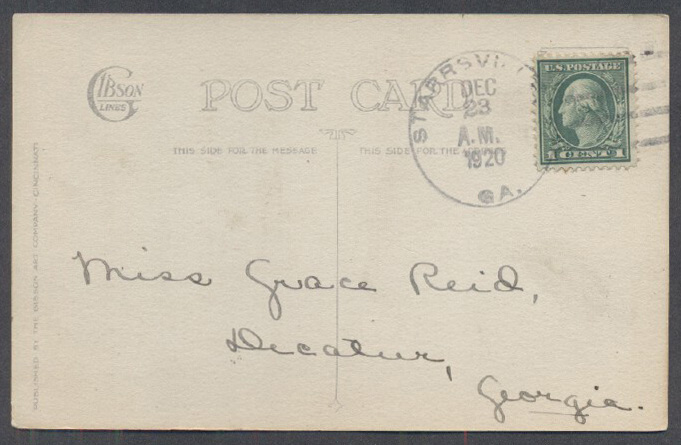 GIBSON
LINES
POST CARD
THIS SIDE FOR THE MESSAGE
THIS SIDE FOR THE
STARRSVILL
DEC
23
A.M.
1920
GA.
U.S. POSTAGE
1 CENT
Miss Grace Reid,
Decatur,
Georgia.
PUBLISHED BY THE GIBSON ART COMPANY CINCINNATI